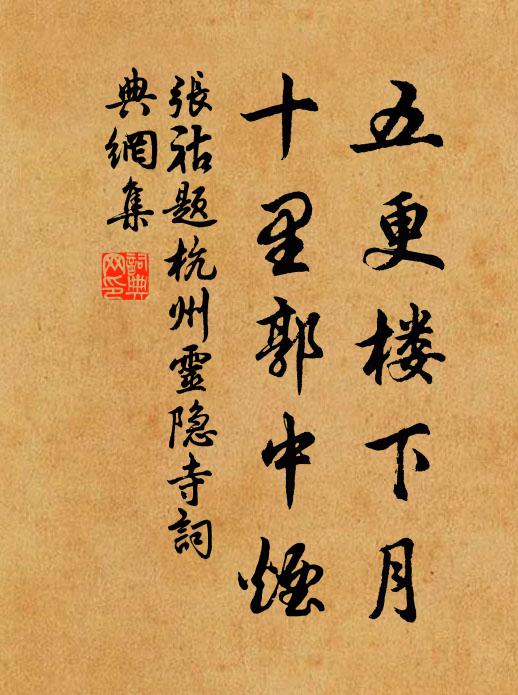 五更楼下月
十里郭中煙
張祜題杭州靈隐寺詞
典網集
詞典
网印